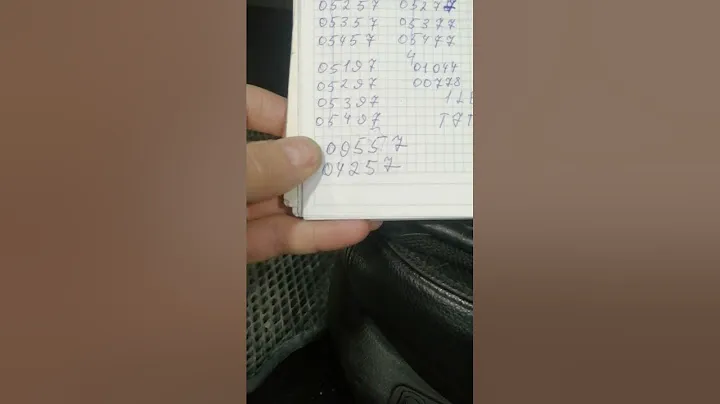 05257 05277
05357 05377
05457 05477
4
05197 01044
05297 00778
05397
05497
00557
04257